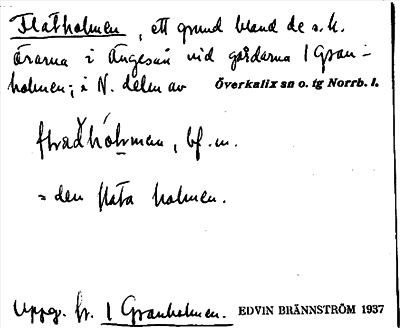 Flatholmen, ett grund bland de s.k.
Örarna i Ängesån vid gårdarna 1 Gran-
holmen; i N. delen av Överkalix sn o. tg Norrb. l.
bf. m.
= den flata holmen.
Uppg. fr. 1 Granholmen. EDVIN BRÄNNSTRÖM 1937